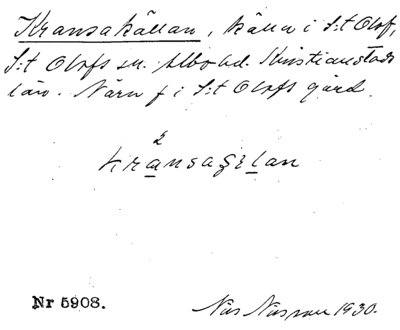 Kransakällan, källa i S:t Olof,
S:t Olofs sn. Albo hd. Kristianstads
län. Närn f i S:t Olofs gård.
2
kransaçɛlan
Nr 5908.
Nils Nilsson 1930.